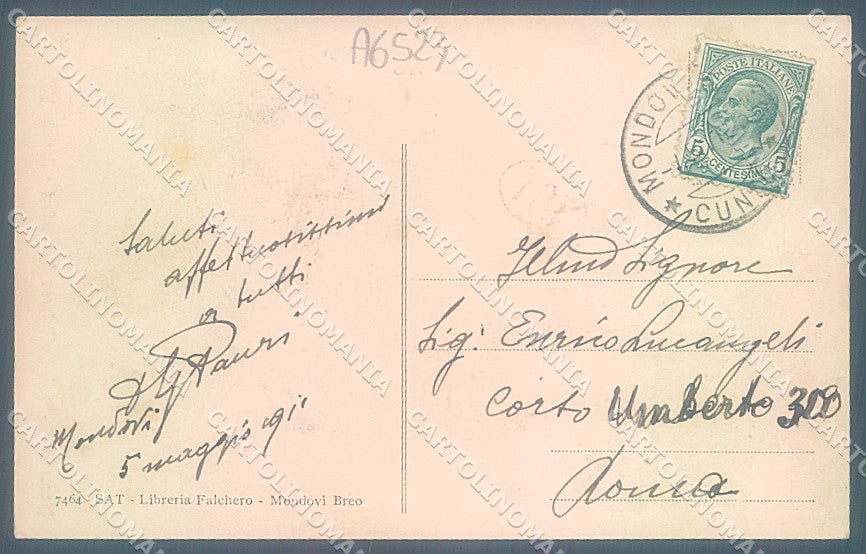 A6523
POSTE ITALIANE
5 CENTESIMI 5
MONDOVI
★ CUN
Saluti
affettuosissimi
a tutti
Mondovì
5 maggio 911
Illmo Signore
Sig: Enrico Lucangeli
Corso Umberto 300
Roma
7464 - SAT - Libreria Falchero - Mondovì Breo
CARTOLINOMANIA